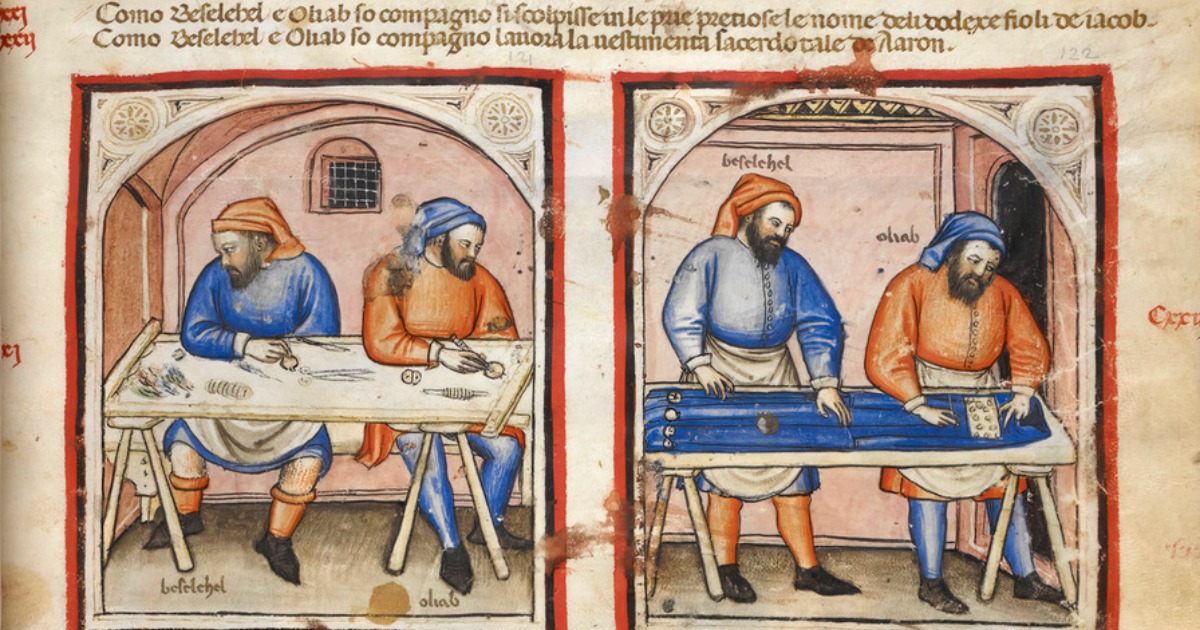 Como Beselehel e Oliab so compagno si scolpisse in le prie pretiose le nome deli dodexe fioli de iacob.
Como Beselehel e Oliab so compagno lauora la uestimenta sacerdotale de Aaron.
121
122
beselehel
oliab
beselehel
oliab